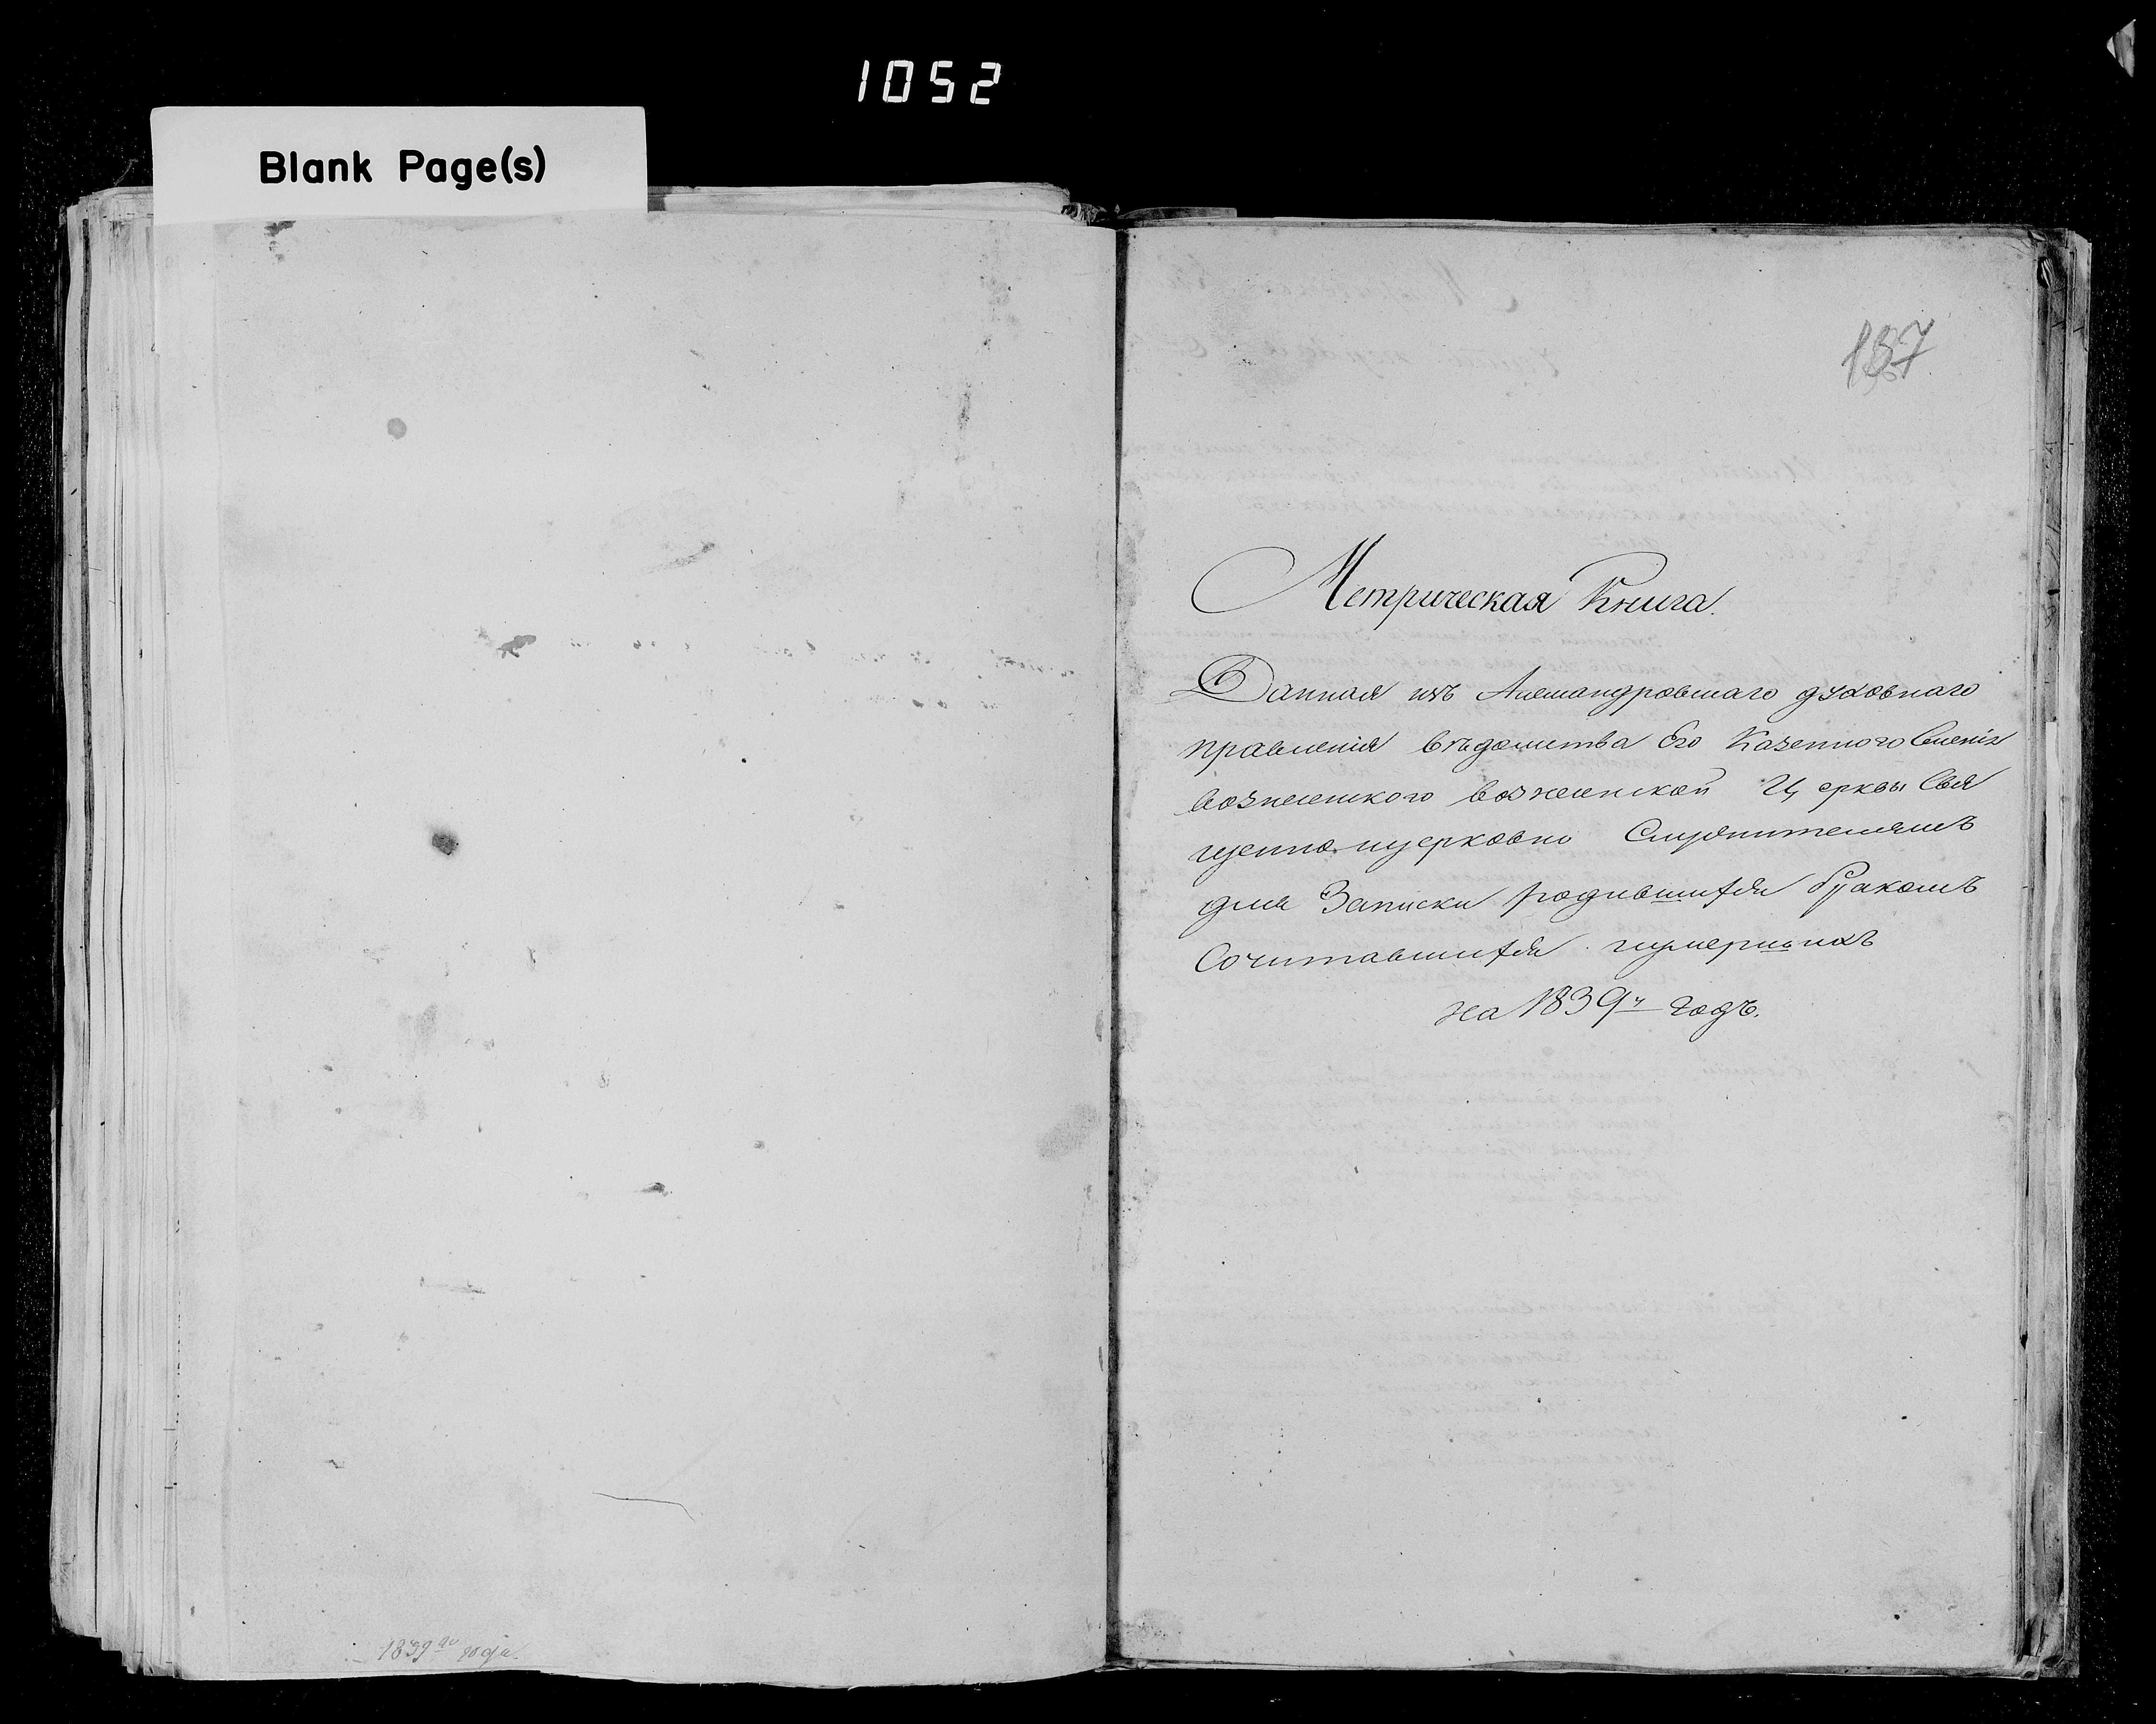 1052
Blank Page(s)
1839го года
137
Метрическая Книга.
Данная изъ Александровскаго духовнаго
правленія вѣдомства Его Казенного Селенія
вознесенского вознесенской Церквы Свя
щенно ицерковно Служителямъ
для Записки родившихся бракомъ
Сочитавшихся иумершихъ
на 1839й годъ.